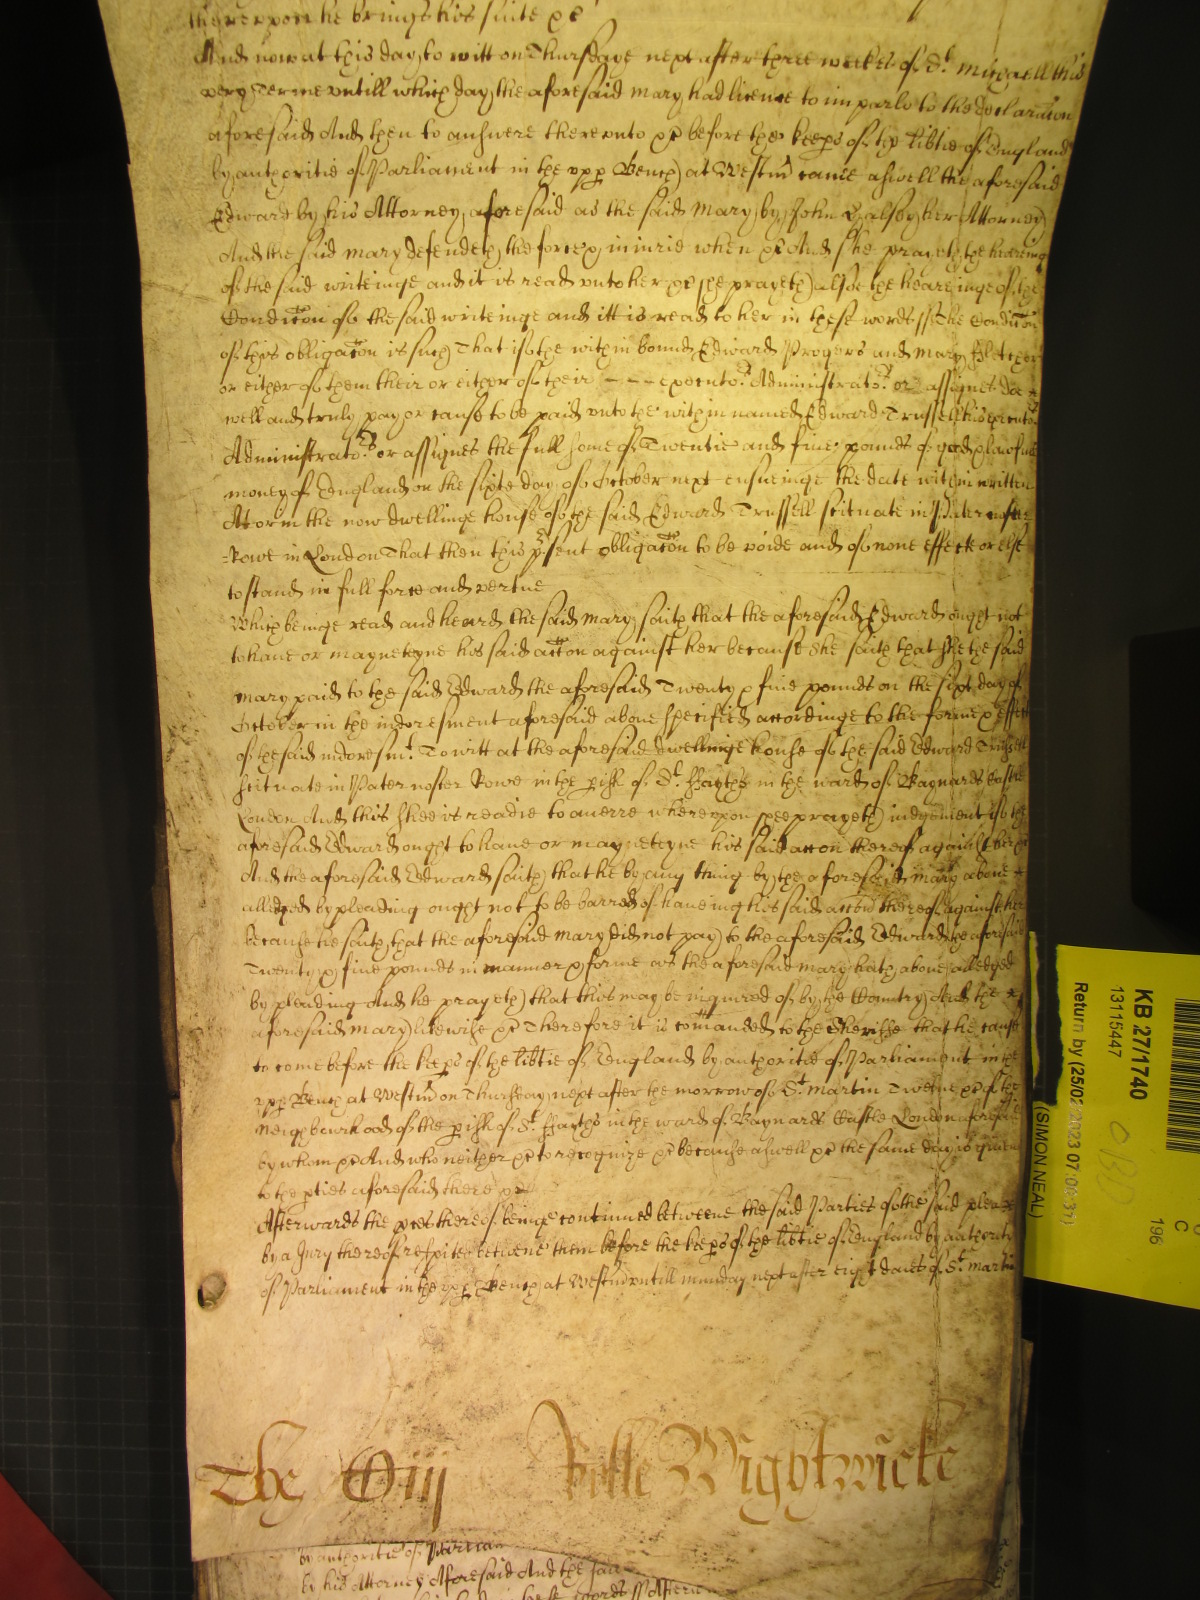 thereupon he brings his suite &c
And now at this day to witt on Thursdaye next after three weekes of St. Michaell this
very Terme untill which day the aforesaid Mary had licence to imparle to the declaracon
aforesaid And then to answere thereunto &c before the keeps of the libtie of England
by authoritie of Parliament in the upp Bench at Westm came aswell the aforesaid
Edward by his Attorney aforesaid as the said Mary by John her Attorney
And the said Mary defendeth the force & iniurie when &c And she prayeth the heareing
of the said writeinge and it is read unto her &c she prayeth alsoe the heareinge of the
Condicon of the said writeinge and itt is read to her in these words ss The Condicon
of this obligacon is such That if the within bound Edward Progers and Mary Fletcher
or either of them their or either of their --- executors Administrators or assignes doe
well and truly pay or cause to be paid unto the within named Edward Trussell his executors
Administrators or assignes the full some of Twentie and five pounds of good & lawfull
money of England on the sixte day of October next ensueinge the date within written
At or in the now dwellinge house of the said Edward Trussell scituate in Pater noster
Rowe in London That then this psent obligacon to be voide and of none effecte or else
to stand in full force and vertue
Which beinge read and heard the said Mary saith that the aforesaid Edward ought not
to have or mayneteyne his said accon against her because she saith that shee the said
Mary paid to the said Edward the aforesaid Twenty & five pounds on the sixt day of
October in the indorsement aforesaid above specified accordinge to the forme & effect
of the said indorsmt. To witt at the aforesaid dwellinge house of the said Edward Trussell
scituate in Pater noster Rowe in the pish of St. Fayths in the ward of Baynards Castle
London And this shee is readie to averre whereupon shee prayeth iudgement if the
aforesaid Edward ought to have or mayneteyne his said accon thereof against her &c
And the aforesaid Edward saith that he by any thing by the aforesaid Mary above
alledged by pleading ought not to be barred of haveing his said accon thereof against her
because he saith that the aforesaid Mary did not pay to the aforesaid Edward the aforesaid
Twenty & five pounds in manner & forme as the aforesaid Mary hath above alledged
by pleading And he prayeth that this may be inquired of by the Country And the
aforesaid Mary likewise &c Therefore it is comanded to the Sheriffe that he cause
to come before the keeps of the libtie of England by authoritie of Parliament in the
upp Bench at Westm on Thursday next after the morrow of St. Martin Twelve &c of the
neighbourhood of the pish of St. Fayths in the ward of Baynards Castle London aforesaid
by whom &c And who neither &c to recognize &c because aswell &c the same day is given
to the pties aforesaid there &c
Afterwards the pces thereof beinge continued betweene the said Parties of the said plea
by a Jury thereof respited betweene them before the keeps of the libtie of England by authoritie
of Parliament in the upp Bench at Westm untill Munday next after eight daies of St. Martin
The Oiij Wightwicke
by authoritie of Parliam
by his Attorney Aforesaid And the said
KB 27/1740
13115447
Return by (25/02/2023 07:06:31)
(SIMON NEAL)
C
196